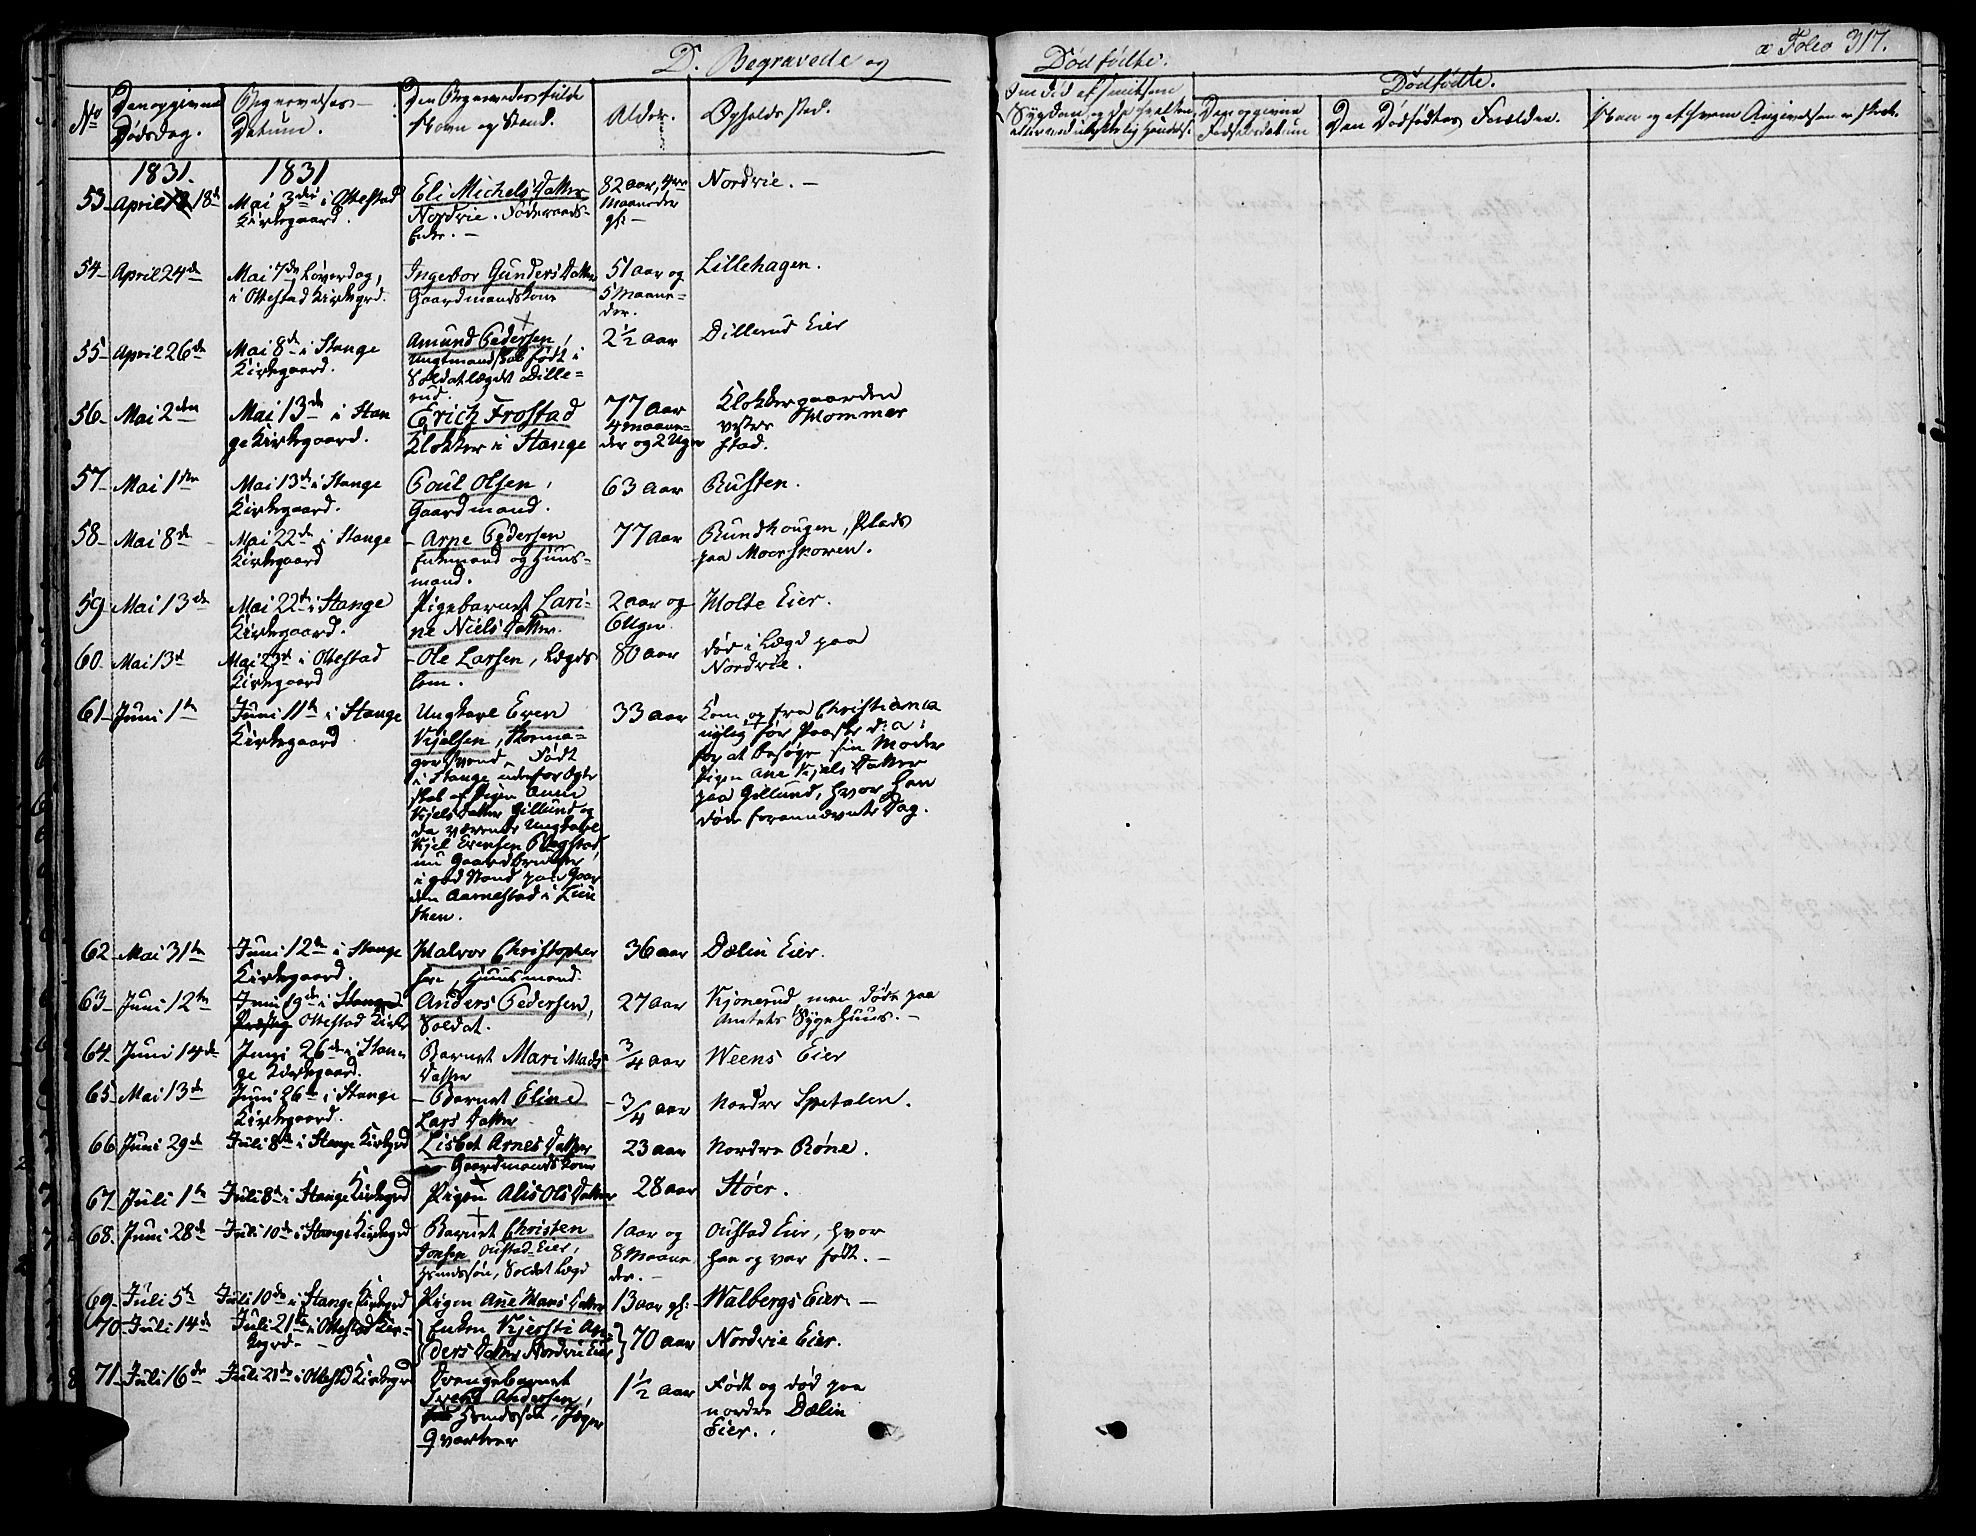 D. Begravede og Dødfødte.
a Folio 317.
No
Den opgivne Dødsdag.
Begravelses-Datum.
Den Begravedes fulde Navn og Stand.
Alder.
Opholdssted.
Dødfødte.
Den opgivne Fødselsdatum
Den Dødfødtes Forældre.
1831. 1831
53 April 18de Mai 3die i Ottestad Kirkegaard. Eli Michels Datter Nordvie. Føderaads- Enke. 82 aar, 4re Maaneder gl: Nordvie.
54 April 24de Mai 7de Løverdag, i Ottestad Kirkegrd. Ingebor Gunders Datter Gaardmandskone 51 aar og 5 Maane= der. Lillehagen.
55 April 26de Mai 8de i Stange Kirkegaard. Amund Pedersen, født i Soldatlægdet Dille= rud. 2½ aar Dillerud Eier
56 Mai 2den Mai 13de i Stan ge Kirkegaard. Erich Frostad Klokker i Stange 77 aar 4 maane= der og 2 Uger Klokkergaarden vestre Hommer stad.
57 Mai 1ste Mai 13de i Stange Kirkegaard. Poul Olsen, Gaardmand. 63 aar Rusten.
58 Mai 8de Mai 22de i Stange Kirkegaard Arne Pedersen Enkemand og Huus= mand. 77 aar Rundhougen, Plads paa Moershoren.
59 Mai 13de Mai 22de i Stange Kirkegaard. Pigebarnet Lari= ne Niels Datter. 2 aar og 6 Uger. Holte Eier.
60 Mai 13de Mai 23de i Ottestad Kirkegaard Ole Larsen, Lægds lem. 80 aar død i Lægd paa Nordvie.
61 Juni 1ste Juni 11te i Stange Kirkegaard Ungkarl Even Kjelsen, Skoma= gersvend, Født i Stange udenfor Ægte skab af Pigen Anne Kjels Datter Gillund og da værende Ungkarl Kjel Evensen nu Gaardbruger i god Stand paa Gaar den Aarnestad i 33 aar Kom og fra Christiania nylig før Paaske d: a: for at besøge sin Moder Pigen Ane Kjels Datter paa Gillund, hvor han døde forannævnte Dag.
62 Mai 31te Juni 12te i Stange Kirkegaard. Halvor Christopher sen, Huusmand. 36 aar Dælin Eier.
63 Juni 12te Juni 19de i Ottestad Kirke Anders Pedersen, Soldat. 27 aar Kjonerud, men døde paa Amtets Sygehuus.
64 Juni 14de Juni 26de i Stan ge Kirkegaard. Barnet Mari Mads Datter 3/4 aar Weens Eier
65 Mai 13de Juni 26de i Stange Kirkegaard. Barnet Eline Lars Datter 3/4 aar Nordre Spetalen.
66 Juni 29de Juli 8de i Stange Kirkegrd Lisbet Arnes Datter Gaardmandskone 23 aar Nordre Røne.
67 Juli 1ste Juli 8de i Stange Kirkegrd Pigen Alis Ols Datter 28 aar Støer.
68 Juni 28de Juli 10de i Stange Kirkegrd Barnet Christen Jonsen Oustad-Eier, Soldat Lægd 1 aar og 8 Maane der. Oustad Eier, hvor han og var født.
69 Juli 5te Juli 10de i Stange Kirkegrd Pigen Ane Maris Datter 13 aar gl: Walbergs Eier
70 Juli 14de Juli 21de i Ottestad Kir= kegrd. Enken Kjersti An= ders Datter Nordvie Eier 70 aar Nordvie Eier.
71 Juli 16de Juli 21de i Ottestad Kirkegrd Drengebarnet Andersen, Jæger Qvarteer 1½ aar Født og død paa nordre Dælin Eier.